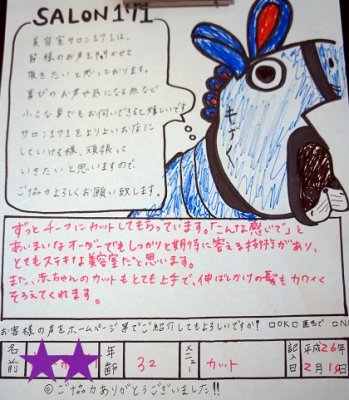 SALON171
美容室サロン171は、
皆様のお声を聞かせて
頂きたいと思っております。
喜びのお声や気になる点など
小さな事でもお伺いできると嬉しいです
サロン171をより良いお店に
していける様、頑張って
いきたいと思いますので
ご協力よろしくお願い致します。
ずっとチーフにカットしてもらっています。「こんな感じで」と
あいまいなオーダーでもしっかりと期待に答える技術があり、
とてもステキな美容室だと思います。
また、赤ちゃんのカットもとても上手で、伸ばしかけの髪もカワイく
そろえてくれます。
お客様の声をホームページ等でご紹介してもよろしいですか? □OK □匿名で □NO
名前 年齢 32 メニュー カット 記入日 平成26年
2月1
◎ご協力ありがとうございました!!